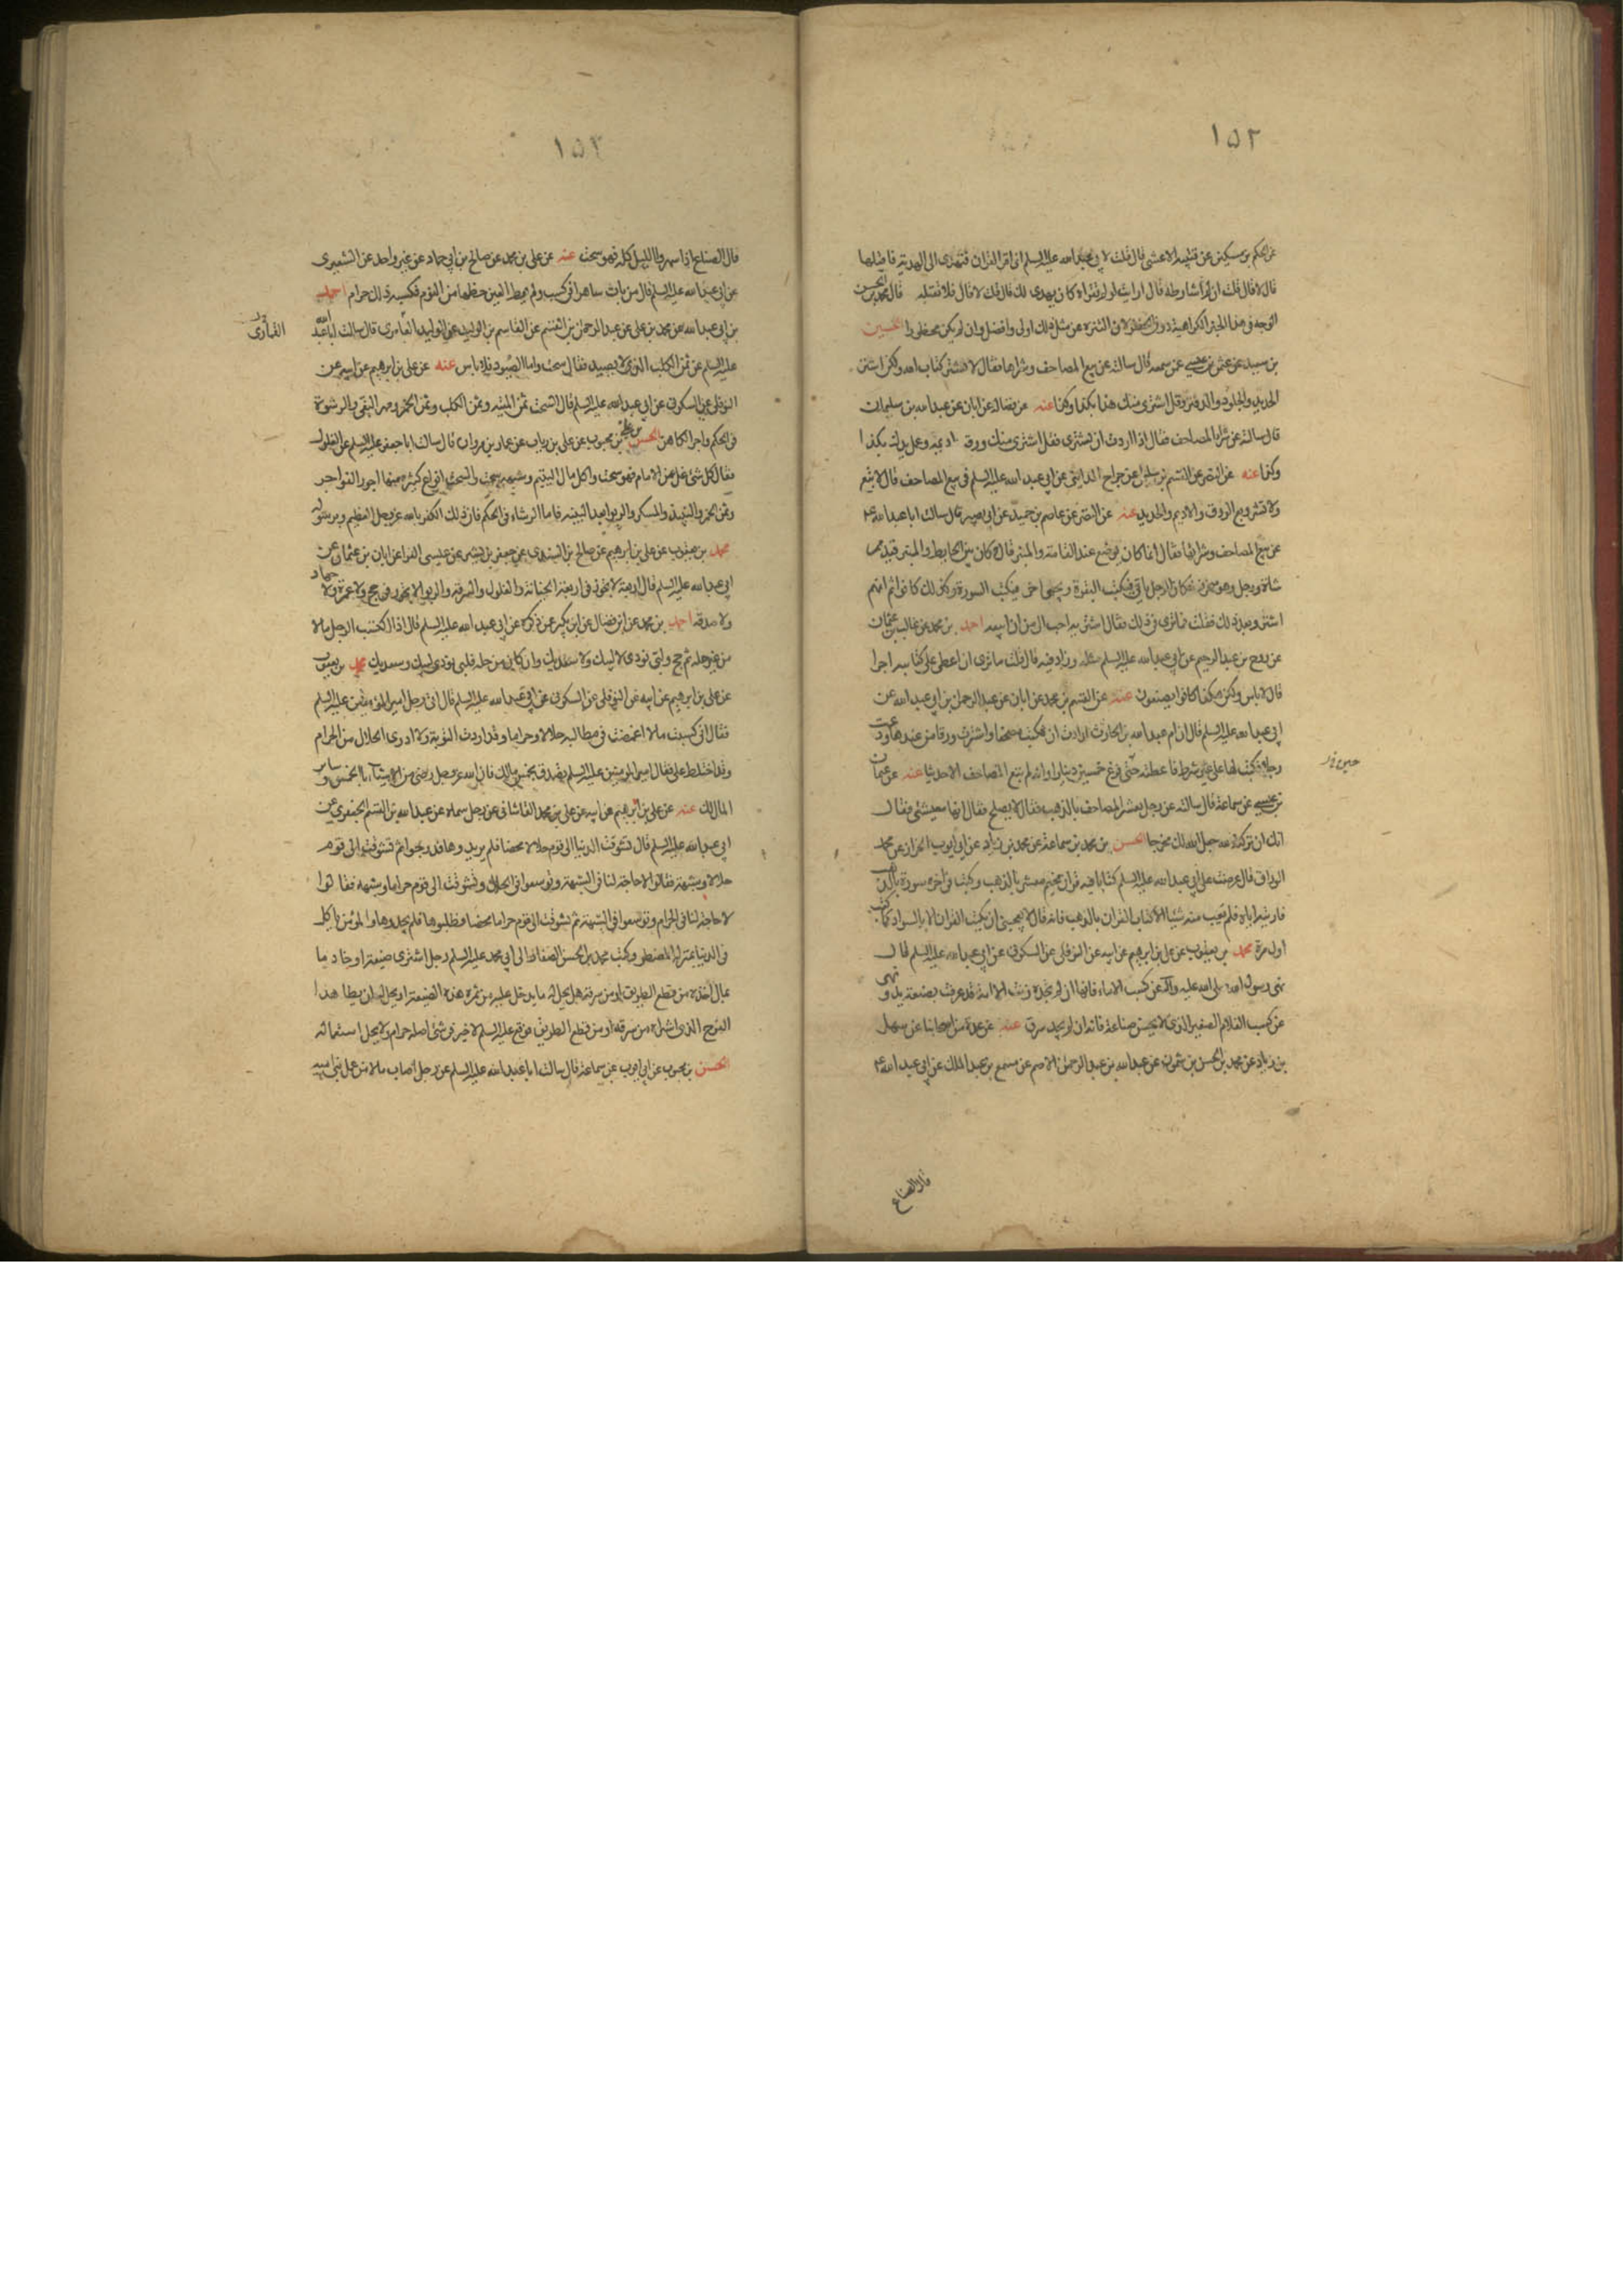 ١٥٢
عن الحكم بن مسكين عن قتيبة الاعشى قال قلت لابي عبدالله عليه السلم انى اقرا القران فتهدى الى الهدية فاقبلها
قال لا قال قلت ان لم اشارطه قال ارايت لو لم تقراه كان يهدى لك قال قلت لا قال فلا تقبله قال محمد بن الحسن
الوجه فى هذا الخبر الكراهية دون الحظر لان التنزه عن مثل ذلك اولى وافضل وان لم يكن محظورا الحسين
بن سعيد عن عثمن بن عيسى عن سمعه قال سالته عن بيع المصاحف وشراها فقال لا تشتر كتاب الله ولكن اشتر
الحديد والجلود والدفتر وقل اشترى منك هذا بكذا وكذا عنه عن فضاله عن ابان عن عبدالله بن سليمان
قال سالته عن شراء المصاحف فقال اذا اردت ان تشترى فقل اشترى منك ورقه واديمه وعمل يدك بكذا
وكذا عنه عن النضر عن القسم بن سليمن عن جراح المدايني عن ابى عبدالله عليه السلم فى بيع المصاحف قال لا تبع
ولا تشتر وبع الورق والاديم والحديد عنه عن النضر عن عاصم بن حميد عن ابى بصير قال سالت ابا عبدالله ع
عن بيع المصاحف وشرائها فقال انما كان يوضع عند القامة والمنبر قال كان بين الحايط والمنبر قيد ممر
شاة ورجل وهو منحرف فكان الرجل ياتى فيكتب البقرة ويجيى اخر فيكتب السورة وكذلك كانوا ثم انهم
اشتروا بعد ذلك فقلت فما ترى فى ذلك فقال اشتريه احب الى من ان ابيعه احمد بن محمد عن غالب بن عثمان
عن روح بن عبدالرحيم عن ابى عبدالله عليه السلم مثله وزاد فيه قال قلت ما ترى ان اعطى على كتابته اجرا
قال لا باس ولكن هكذا كانوا يصنعون عنه عن القسم بن محمد عن ابان عن عبدالرحمن بن ابى عبدالله عن
ابى عبدالله عليه السلم قال ان ام عبدالله بن الحارث ارادت ان تكتب مصحفا واشترت ورقا من عندها ودعت
رجلا فكتب لها على غير شرط فاعطته حين فرغ خمسين دينارا وانه لم تبع المصاحف الا حديثا عنه عن عثمان
حين نخ
بن عيسى عن سماعة قال سالته عن رجل يعشر المصاحف بالذهب فقال لا يصلح فقال انها معيشتى فقال
انك ان تركته لله جعل الله لك مخرجا الحسن بن محمد بن سماعة عن محمد بن زياد عن ابى ايوب الخزاز عن محمد
الوراق قال عرضت على ابى عبدالله عليه السلم كتابا فيه قران مختم معشر بالذهب وكتب فى اخره سورة بالذهب
فاريته اياه فلم يعب منه شيئا الا كتاب القران بالذهب فانه قال لا يعجبنى ان يكتب القران الا بالسواد كما كتب
اول مرة محمد بن يعقوب عن على بن ابراهيم عن ابيه عن النوفلى عن السكونى عن ابى عبدالله عليه السلم قال
نهى رسول الله صلى الله عليه واله عن كسب الاماء فانها ان لم تجده زنت الا امة قد عرفت بصنعة يد ونهى
عن كسب الغلام الصغير الذى لا يحسن صناعة فانه ان لم يجد سرق عنه عن عدة من اصحابنا عن سهل
بن زياد عن محمد بن الحسن بن شمون عن عبدالله بن عبدالرحمن الاصم عن مسمع بن عبدالملك عن ابى عبدالله ع
قال الصناع
١٥٣
قال الصناع اذا سهروا الليل كله فهو سحت عنه عن على بن محمد عن صالح بن ابى حماد عن غير واحد عن الشعيرى
عن ابى عبدالله عليه السلم قال من بات ساهرا فى كسب ولم يعط العين حظها من النوم فكسبه ذلك حرام احمد
بن ابى عبدالله عن محمد بن على عن عبدالرحمن بن القسم عن القاسم بن الوليد عن الوليد العامرى قال سالت ابا عبدالله
القمارى
عليه السلم عن ثمن الكلب الذى لا يصيد فقال سحت واما الصيود فلا باس عنه عن على بن ابرهيم عن ابيه عن
النوفلى عن السكونى عن ابى عبدالله عليه السلم قال السحت ثمن الميته وثمن الكلب وثمن الخمر ومهر البغى والرشوة
فى الحكم واجر الكاهن الحسن بن محبوب عن على بن رياب عن عمار بن مروان قال سالت ابا جعفر عليه السلم عن الغلول
فقال كل شئ غل من الامام فهو سحت واكل مال اليتيم وشبهه سحت والسحت انواع كثيرة منها اجور الفواجر
وثمن الخمر والنبيذ والمسكر والربوا بعد البينه فاما الرشاء فى الحكم فان ذلك الكفر بالله عز وجل العظيم وبرسوله
محمد بن يعقوب عن على بن ابرهيم عن صالح بن السندى عن جعفر بن بشير عن عيسى الفرا عن ابان بن عثمان عن
ابى عبدالله عليه السلم قال اربعة لا تجوز فى اربعة الخيانة والغلول والسرقة والربوا لا تجوز فى حج ولا عمرة ولا جهاد
ولا صدقه احمد بن محمد عن ابن فضال عن ابن بكير عمن ذكره عن ابى عبدالله عليه السلم قال اذا اكتسب الرجل مالا
من غير حله ثم حج ولبى نودى لا لبيك ولا سعديك وان كان من حله فلبى نودى لبيك وسعديك محمد بن يعقوب
عن على بن ابرهيم عن ابيه عن النوفلى عن السكونى عن ابى عبدالله عليه السلم قال اتى رجل امير المؤمنين عليه السلم
فقال انى كسبت مالا اغمضت فى مطالبه حلالا وحراما وقد اردت التوبة ولا ادرى الحلال من الحرام
وقد اختلط على فقال امير المؤمنين عليه السلم تصدق بخمس مالك فان الله عز وجل رضى من الاشياء بالخمس وساير
المال لك عنه عن على بن ابرهيم عن ابيه عن على بن محمد القاشانى عن رجل سماه عن عبدالله بن القسم الجعفرى عن
ابى عبدالله عليه السلم قال تشوقت الدنيا الى قوم حلالا محضا فلم يريدوها فدرجوا ثم تشوقت الى قوم
حلالا وشبهة فقالوا لا حاجة لنا فى الشبهة وتوسعوا فى الحلال وتشوقت الى قوم حراما وشبهه فقالوا
لا حاجة لنا فى الحرام وتوسعوا فى الشبهة ثم تشوقت الى قوم حراما محضا فطلبوها فلم يجدوها والمؤمن ياكل
فى الدنيا بمنزلة المضطر وكتب محمد بن الحسن الصفار الى ابى محمد عليه السلم رجل اشترى ضيعة او خادما
بمال اخذه من قطع الطريق او من سرقة هل يحل له ما يدخل عليه من ثمرة هذه الضيعة او يحل له ان يطا هذا
الفرج الذى اشراه من سرقة او من قطع الطريق فوقع عليه السلم لا خير فى شئ اصله حرام ولا يحل استعماله
الحسن بن محبوب عن ابى ايوب عن سماعة قال سالت ابا عبدالله عليه السلم عن رجل اصاب مالا من عمل بنى اميه